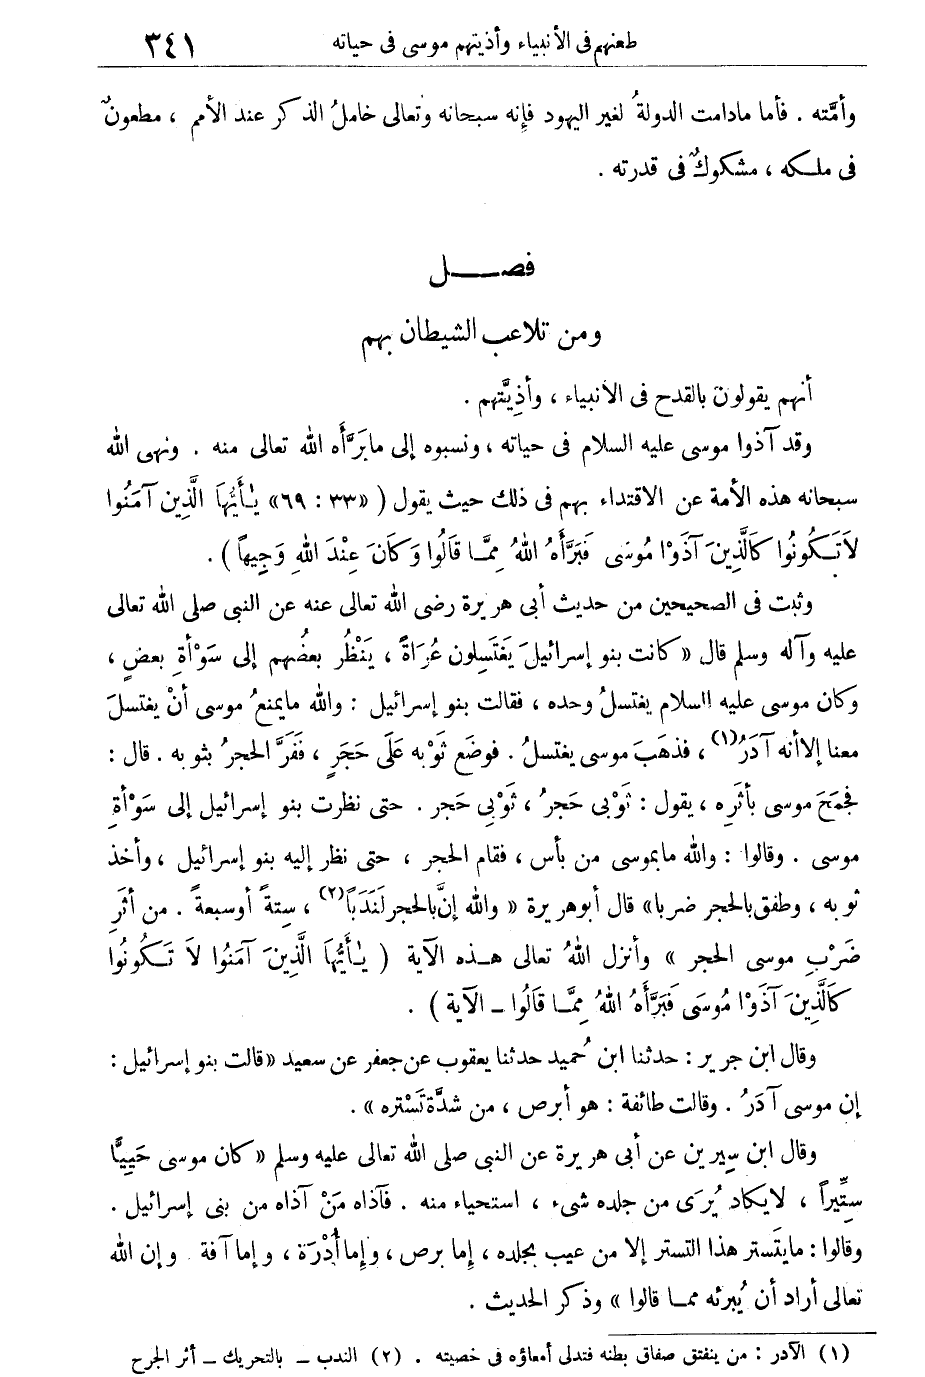 طعنهم فى الأنبياء وأذيتهم موسى فى حياته ٣٤١
وأمَّته . فأما مادامت الدولةُ لغير اليهود فإنه سبحانه وتعالى خاملُ الذكر عند الأمم ، مطعونٌ
فى ملكه ، مشكوكٌ فى قدرته .
فصـــل
ومن تلاعب الشيطان بهم
أنهم يقولون بالقدح فى الأنبياء ، وأذِيَّتهم .
وقد آذوا موسى عليه السلام فى حياته ، ونسبوه إلى مابَرَّأه الله تعالى منه . ونهى الله
سبحانه هذه الأمة عن الاقتداء بهم فى ذلك حيث يقول ( «٣٣ : ٦٩» يٰأَيُّهَا الَّذِينَ آمَنُوا
لاَتَكُونُوا كَالَّذِينَ آذَوْا مُوسَى فَبَرَّأَهُ اللهُ مِمَّا قَالُوا وَكَانَ عِنْدَ اللهِ وَجِيهاً ) .
وثبت فى الصحيحين من حديث أبى هريرة رضى الله تعالى عنه عن النبى صلى الله تعالى
عليه وآله وسلم قال « كانت بنو إسرائيلَ يَغتَسِلون عُرَاةً ، يَنْظُر بعضُهم إلى سَوْأةِ بعضٍ ،
وكان موسى عليه السلام يغتسلُ وحده ، فقالت بنو إسرائيل : والله مايمنعُ موسى أنْ يغتسلَ
معنا إلاأنه آدَرُ(١) ، فذهَبَ موسى يغتسلُ . فوضَع ثَوْبه عَلَى حَجَرٍ ، فَفَرَّ الحجرُ بثوبه . قال :
فجمَحَ موسى بأثَرِه ، يقول : ثَوْبى حَجرُ ، ثَوْبِى حَجر . حتى نظرت بنو إسرائيل إلى سَوْأةِ
موسى . وقالوا : والله مابموسى من بأس ، فقام الحجر ، حتى نظر إليه بنو إسرائيل ، وأخذ
ثوبه ، وطفق بالحجر ضربا» قال أبوهريرة « والله إنَّ بالحجر لَنَدَباً(٢) ، ستةً أوسبعةً . من أثَرِ
ضَرْبِ موسى الحجر » وأنزل اللهُ تعالى هـذه الآية ( يٰأَيُّهَا الَّذِينَ آمَنُوا لاَ تَكُونُوا
كَالَّذِينَ آذَوْا مُوسَى فَبَرَّأَهُ اللهُ مِمَّا قَالُوا ــ الآية ) .
وقال ابن جرير : حدثنا ابن حُميد حدثنا يعقوب عن جعفر عن سعيد «قالت بنو إسرائيل :
إن موسى آدَرُ . وقالت طائفة : هو أبرص ، من شدَّة تَسْتره » .
وقال ابن سِيرين عن أبى هريرة عن النبى صلى الله تعالى عليه وسلم « كان موسى حَيِيًّا
سِتِّيراً ، لايكاد يُرَى من جلده شىء ، استحياء منه . فآذاه مَنْ آذاه من بنى إسرائيل .
وقالوا : مايتَستر هذا التستر إلا من عيب بجلده ، إما برص ، وإما أُدْرَة ، وإما آفة . وإن الله
تعالى أراد أن يُبرئه ممـا قالوا » وذكر الحديث .
(١) الآدر : من ينفتق صفاق بطنه فتدلى أمعاؤه فى خصيته . (٢) الندب ــ بالتحريك ــ أثر الجرح